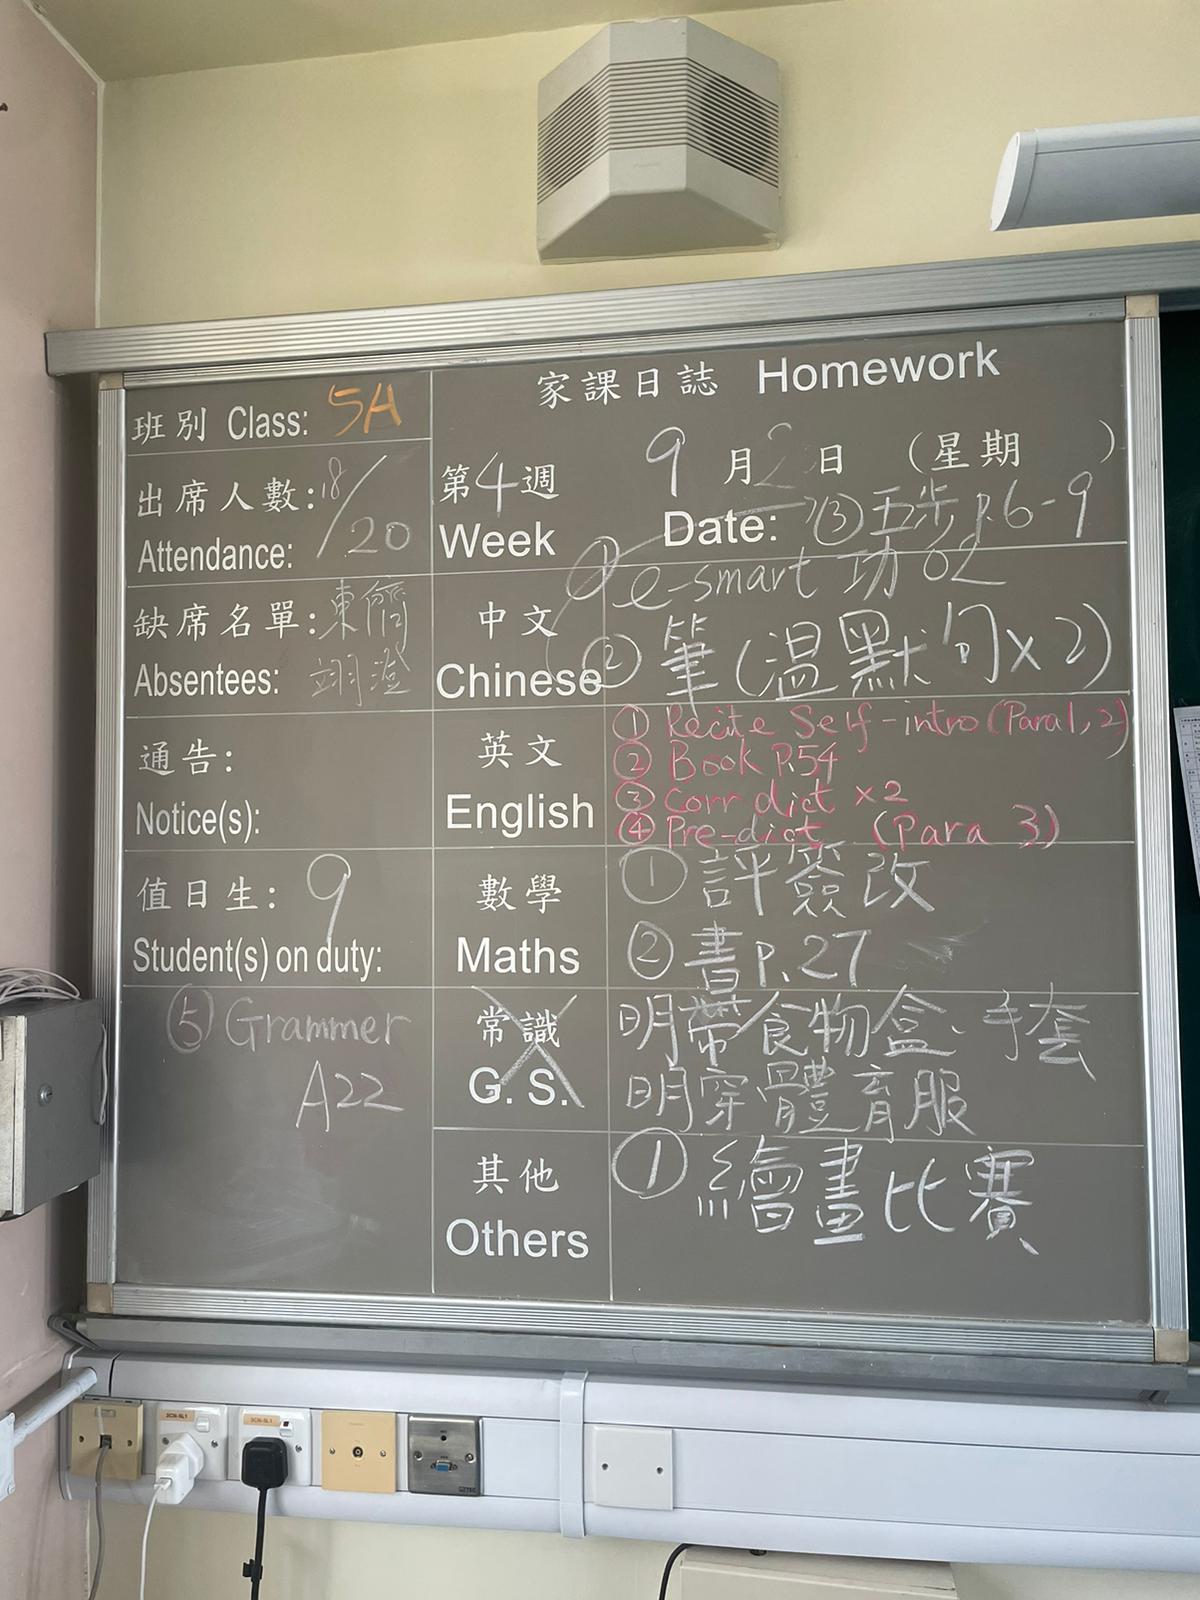 家課日誌 Homework
班別 Class: 5A
出席人數: 18/20
Attendance:
第4週
Week
9月2日 (星期 )
Date:
③ 五步 p.6-9
缺席名單: 東儕
Absentees: 翊澄
中文
Chinese
① e-smart 功 02
② 筆(溫默句x2)
通告:
Notice(s):
英文
English
① Recite Self-intro (Para1,2)
② Book P.54
③ Corr dict x2
④ Pre-dict (Para 3)
值日生: 9
Student(s) on duty:
數學
Maths
① 評簽改
② 書 P.27
⑤ Grammer
A22
常識
G. S.
明帶食物盒、手套
明穿體育服
其他
Others
① 繪畫比賽